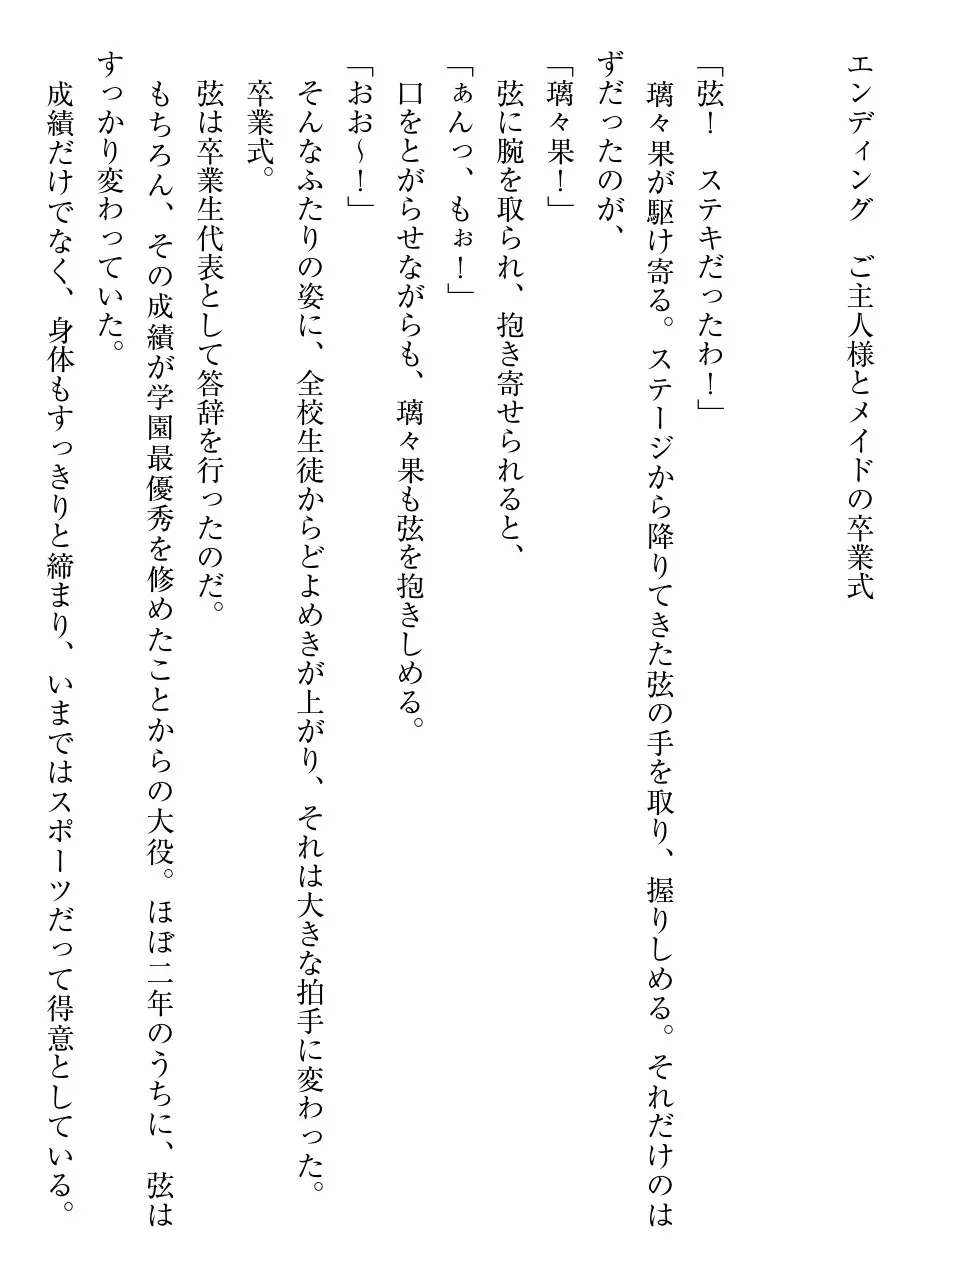 エンディング　ご主人様とメイドの卒業式
「弦！　ステキだったわ！」
　璃々果が駆け寄る。ステージから降りてきた弦の手を取り、握りしめる。それだけのは
ずだったのが、
「璃々果！」
　弦に腕を取られ、抱き寄せられると、
「ぁんっ、もぉ！」
　口をとがらせながらも、璃々果も弦を抱きしめる。
「おお～！」
　そんなふたりの姿に、全校生徒からどよめきが上がり、それは大きな拍手に変わった。
　卒業式。
　弦は卒業生代表として答辞を行ったのだ。
　もちろん、その成績が学園最優秀を修めたことからの大役。ほぼ二年のうちに、弦は
すっかり変わっていた。
　成績だけでなく、身体もすっきりと締まり、いまではスポーツだって得意としている。